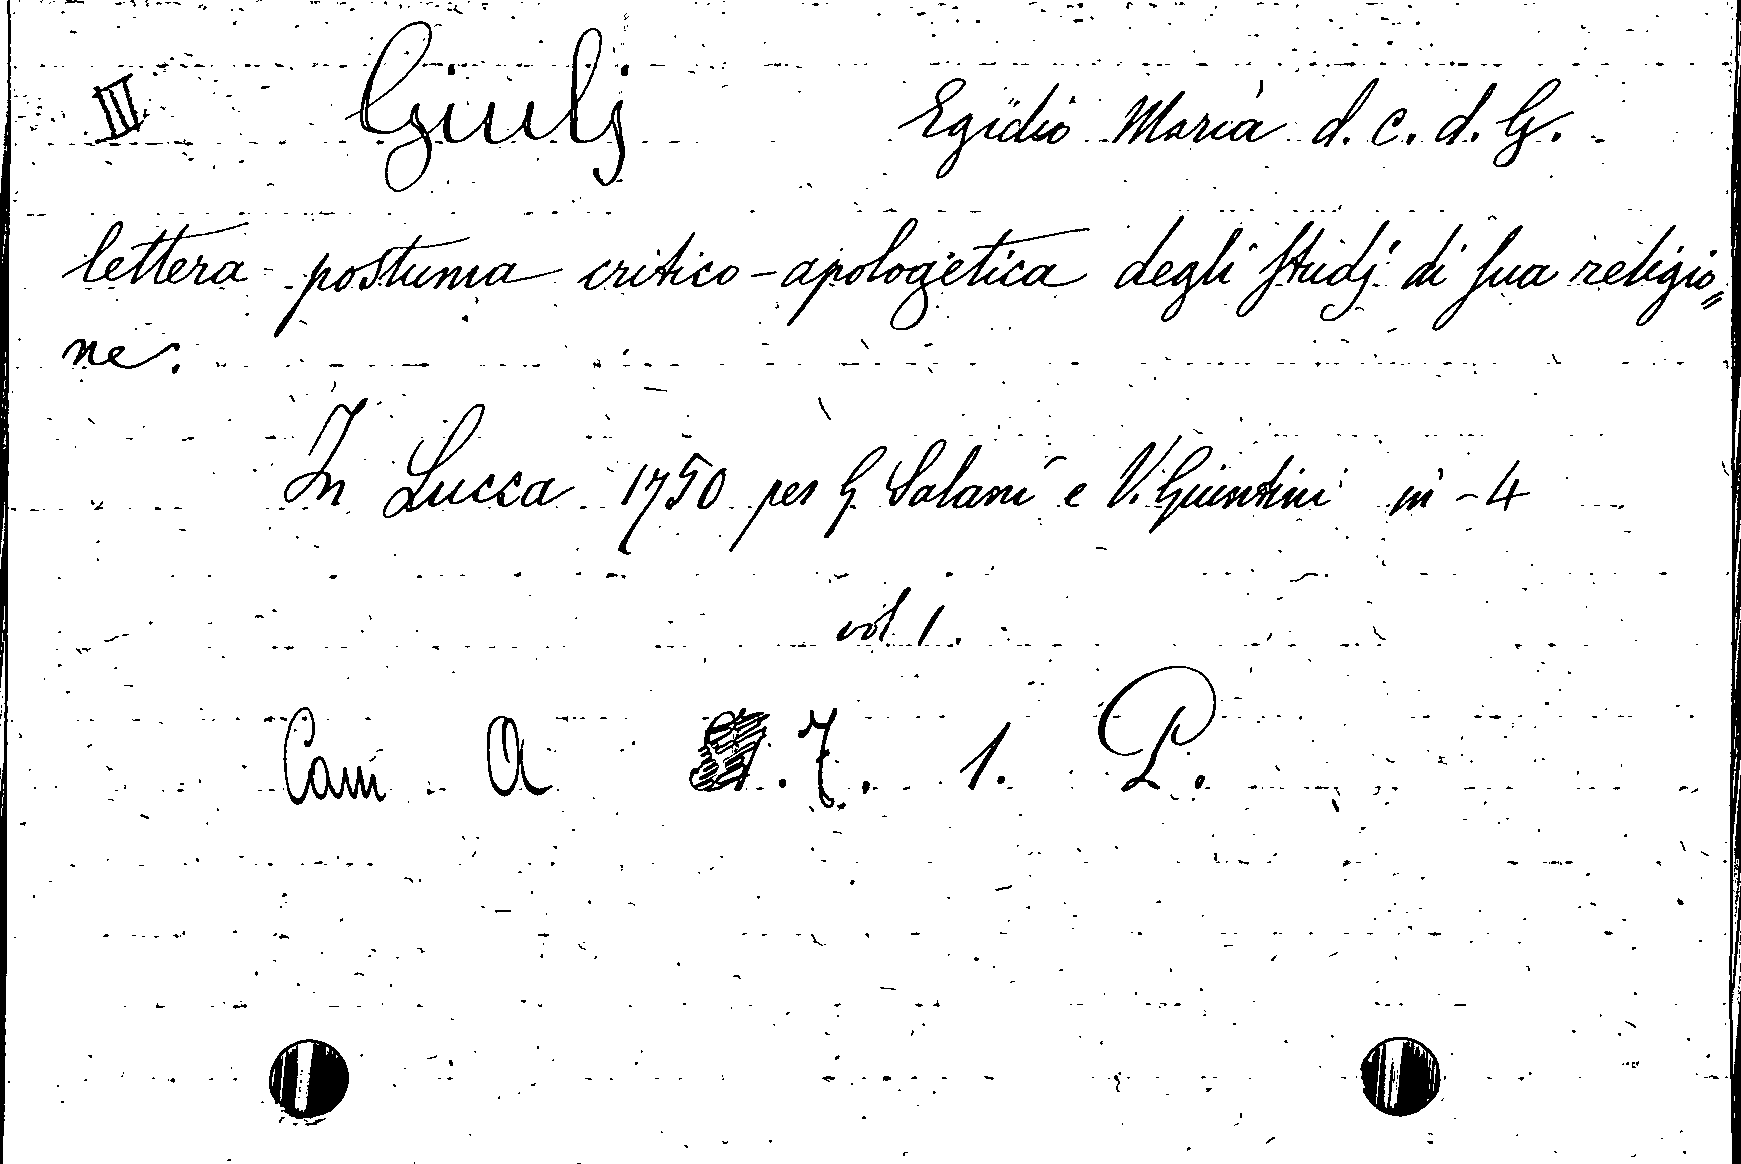 III Giulj Egidio Maria d. C. d. G.
lettera postuma critico-apologetica degli studj di sua religio„
ne.
In Lucca 1750 per G. Salani e V. Giuntini in-4
vol 1.
Cam A .7. 1. P.